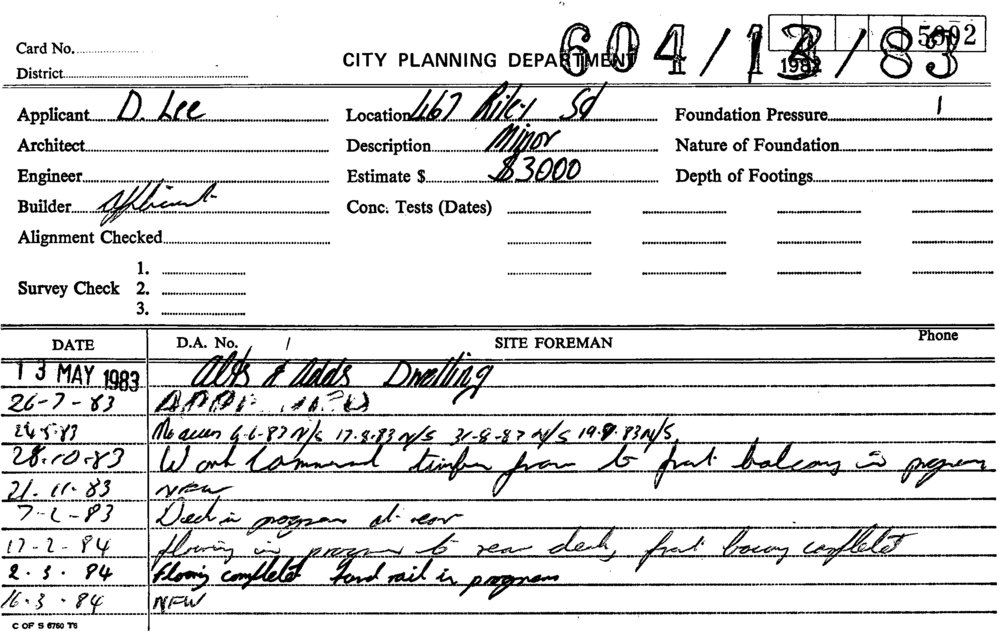 Card No.
District
CITY PLANNING DEPARTMENT
604/13/83
1982
5002
Applicant D. Lee
Location 467 Riley St
Foundation Pressure
Architect
Description Minor
Nature of Foundation
Engineer
Estimate $ $3000
Depth of Footings
Builder
Conc. Tests (Dates)
Alignment Checked
Survey Check
1.
2.
3.
DATE D.A. No. / SITE FOREMAN Phone
13 MAY 1983 Alts & Adds Dwelling
26-7-83
No 17.8.83 N/S 31-8-83 N/S 19.9.83 N/S
28.10.83 Work Commenced timber frame to front balcony in progress
21.11.83 NFW
Deck in progress at rear
17-2-84 flooring in progress to rear deck, front complete
2.3.84 Flooring complete hand rail in progress
16.3.84 NFW
C OF S 6760 T6